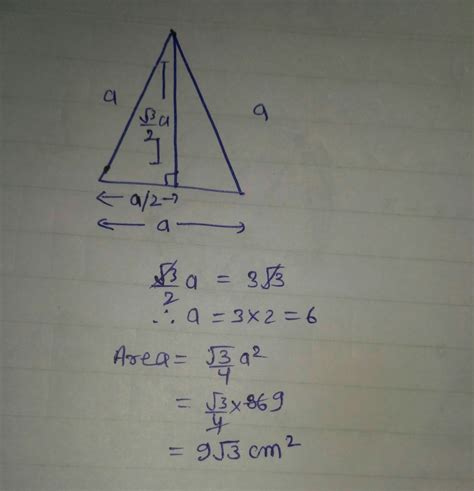 a
a
√3/2 a
a/2
a
√3/2 a = 3√3
∴ a = 3×2 = 6
Area = √3/4 a²
= √3/4 × 369
= 9√3 cm²